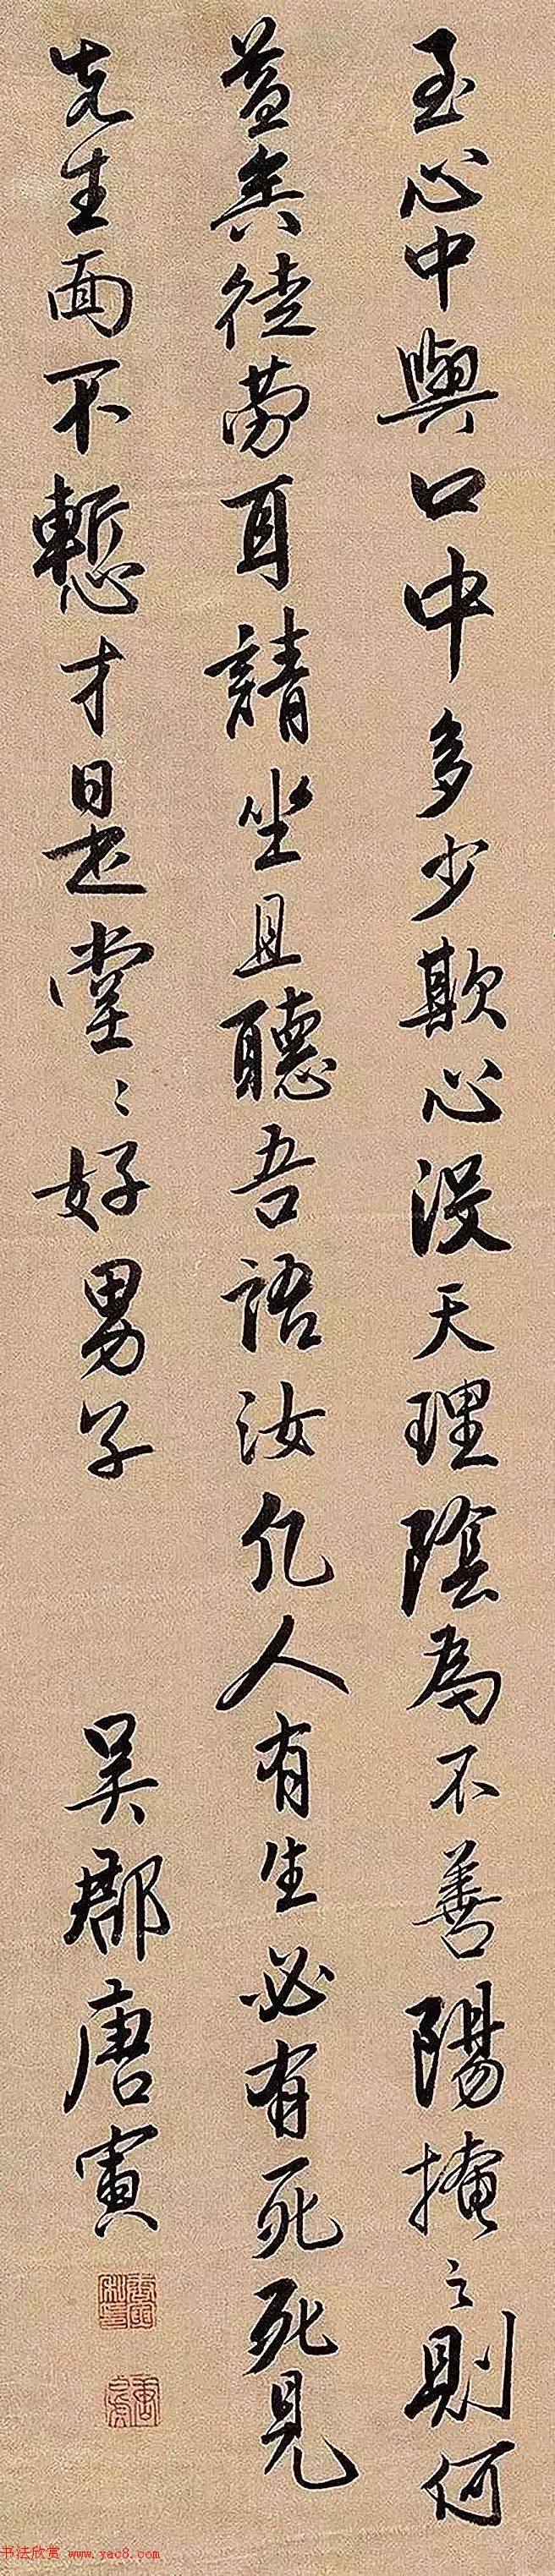 至心中與口中多少欺心没天理陰為不善陽掩之則何
益矣徒劳耳請坐且聽吾語汝凡人有生必有死死見
先生面不慙才是堂〻好男子
吳郡唐寅
书法欣赏 www.yac8.com